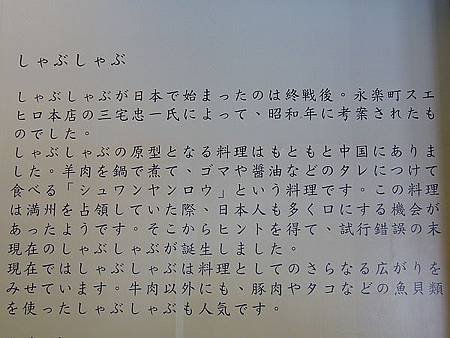 しゃぶしゃぶ
しゃぶしゃぶが日本で始まったのは終戦後。永楽町スエ
ヒロ本店の三宅忠一氏によって、昭和年に考案されたも
のでした。
しゃぶしゃぶの原型となる料理はもともと中国にありま
した。羊肉を鍋で煮て、ゴマや醤油などのタレにつけて
食べる「シュワンヤンロウ」という料理です。この料理
は満州を占領していた際、日本人も多く口にする機会が
あったようです。そこからヒントを得て、試行錯誤の末
現在のしゃぶしゃぶが誕生しました。
現在ではしゃぶしゃぶは料理としてのさらなる広がりを
みせています。牛肉以外にも、豚肉やタコなどの魚貝類
を使ったしゃぶしゃぶも人気です。